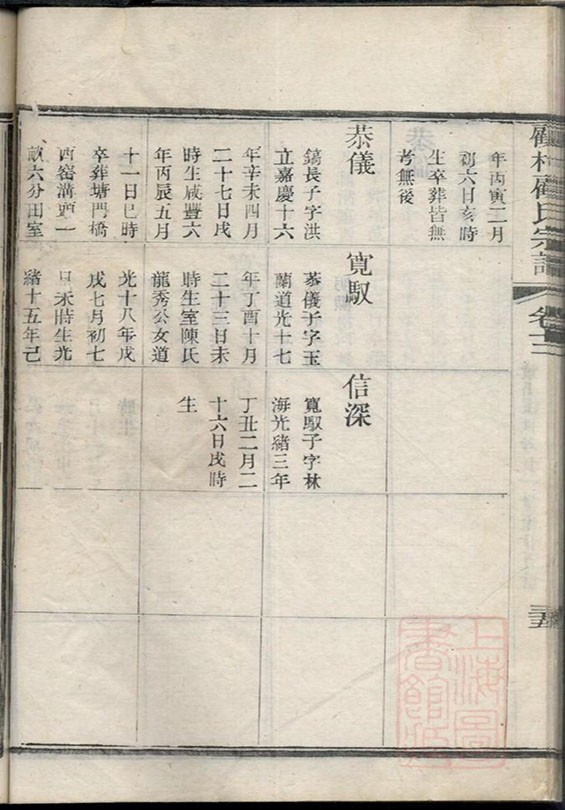 村顧氏宗譜
卷十二
三五
年丙寅二月
初六日亥時
生卒葬皆無
考無後
恭儀
鎬長子字洪
立嘉慶十六
年辛未四月
二十七日戌
時生咸豐六
年丙辰五月
十一日巳時
卒葬塘門橋
西窰溝頭一
畝六分田室
寬馭
恭儀子字玉
蘭道光十七
年丁酉十月
二十三日未
時生室陳氏
龍秀公女道
光十八年戊
戌七月初七
日未時生光
緒十五年己
信深
寬馭子字林
海光緒三年
丁丑二月二
十六日戌時
生
上海圖
書館藏